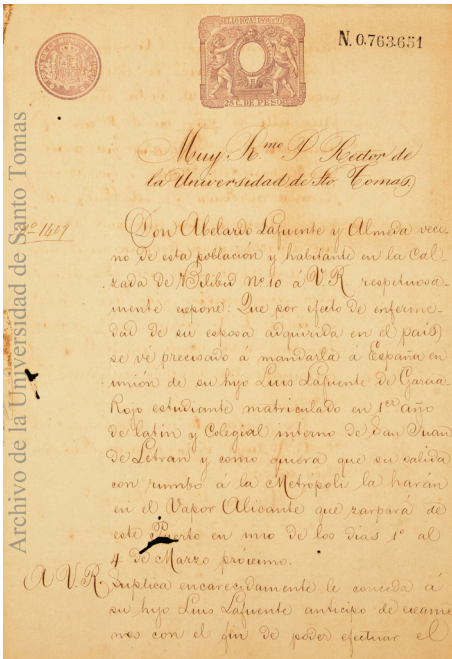 SELLO 10º AÑOS 1896 Y 97
N. 0.763.651
25 C. DE PESO
Muy R.mo P. Rector de
la Universidad de Sto. Tomas,
Nº 1409
Don Abelardo Lafuente y Almeda veci-
no de esta población y habitante en la Cal-
zada de Bilibid Nº 10 á V. R. respetuosa-
mente espone: Que por efecto de enferme-
dad de su esposa adquirida en el pais,
se vé precisado a mandarla a España en
unión de su hijo Luis Lafuente de Garcia
Rojo estudiante matriculado en 1er año
de latin y Colegial interno de San Juan
de Letran y como quiera que su salida
con rumbo á la Metropoli la harán
en el Vapor Alicante que zarpará de
este Puerto en uno de los dias 1º al
4 de Marzo procsimo.
A V. R. suplica encarecidamente le conceda á
su hijo Luis Lafuente anticipo de exame-
nes con el fin de poder efectuar el
Archivo de la Universidad de Santo Tomas